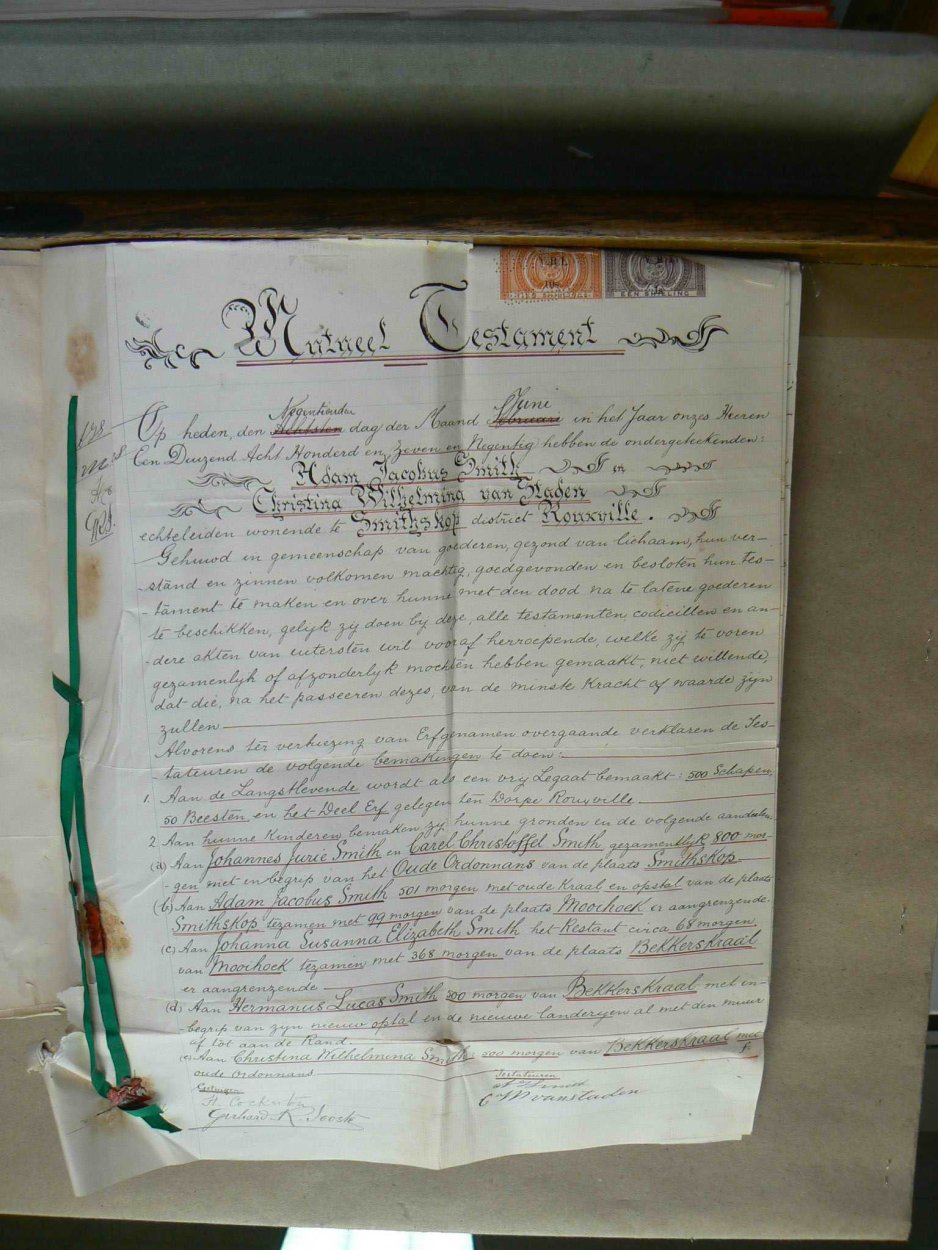 V.R.I. V.R.I.
10s
TIEN SHILLINGS EEN SHILLING
Mutueel Testament
Negentienden Juni
Op heden, den Achtsten dag der Maand Februari in het Jaar onzes Heeren
Een Duizend Acht Honderd en Zeven en Negentig hebben de ondergeteekenden:
Adam Jacobus Smith en
Christina Wilhelmina van Staden
echtelieden wonende te Smithskop district Rouxville.
Gehuwd in gemeenschap van goederen, gezond van lichaam, hun ver-
stand en zinnen volkomen machtig, goedgevonden en besloten hun Tes-
tament te maken en over hunne met den dood na te latene goederen
te beschikken, gelyk zy doen by deze, alle testamenten, codicillen en an-
dere akten van uitersten wil vooraf herroepende, welke zy te voren
gezamenlyk of afzonderlyk mochten hebben gemaakt, niet willende,
dat die, na het passeeren dezes, van de minste Kracht of waarde zyn
zullen
Alvorens ter verkiezing van Erfgenamen overgaande verklaren de Tes-
tateuren de volgende bemakingen te doen:-
1. Aan de Langstlevende wordt als een vry Legaat bemaakt: 500 Schapen,
50 Beesten, en het Deel Erf gelegen ten Dorpe Rouxville.
2. Aan hunne Kinderen, bemaken zy hunne gronden en de volgende aandeelen
(a) Aan Johannes Jurie Smith en Carel Christoffel Smith gezamentlyk 800 mor-
gen met inbegrip van het Oude Ordonnans van de plaats Smithskop.
(b) Aan Adam Jacobus Smith 501 morgen met oude Kraal en opstal van de plaats
Smithskop tezamen met 99 morgen van de plaats Mooihoek er aangrenzende.
(c) Aan Johanna Susanna Elizabeth Smith het Restant circa 68 morgen
van Mooihoek tezamen met 368 morgen van de plaats Bekkerskraal
er aangrenzende
(d) Aan Hermanus Lucas Smith 300 morgen van Bekkerskraal met in-
begrip van zyn nieuw opstal en de nieuwe landeryen al met den muur
af tot aan de Rand.
(e) Aan Christina Wilhelmina Smith 500 morgen van Bekkerskraal met
oude Ordonnans
Getuigen Testateuren
Gerhard K. C W vanstaden